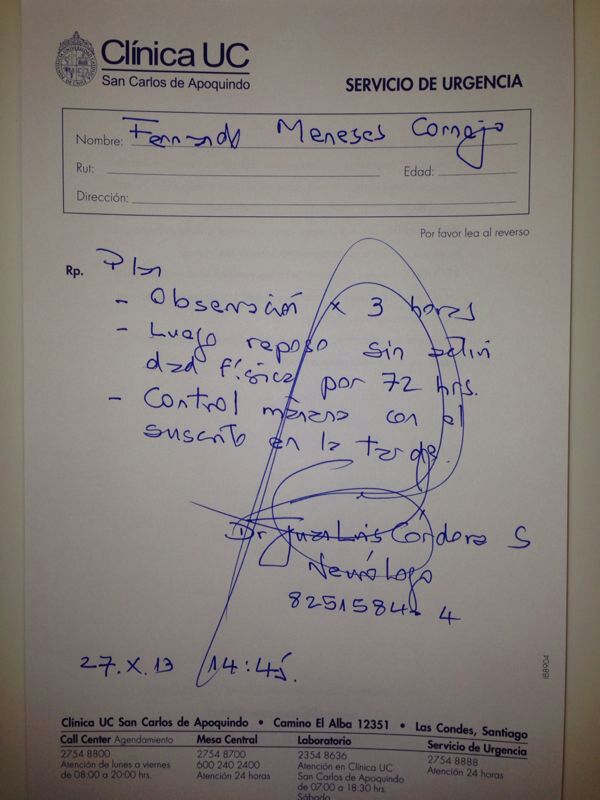 Clínica UC
San Carlos de Apoquindo
SERVICIO DE URGENCIA
Nombre: Fernando Meneses Cornejo
Rut: Edad:
Dirección:
Por favor lea al reverso
Rp. Plan
- Observación x 3 horas
- Luego reposo sin activi
dad física por 72 hrs.
- Control mañana con el
suscrito en la tarde.
Dr Juan Luis Córdova S
Neurólogo
8251584-4
27.X.13 14:45.
188904
Clínica UC San Carlos de Apoquindo • Camino El Alba 12351 • Las Condes, Santiago
Call Center Agendamiento
2754 8800
Atención de lunes a viernes
de 08:00 a 20:00 hrs.
Mesa Central
2754 8700
600 240 2400
Atención 24 horas
Laboratorio
2354 8636
Atención en Clínica UC
San Carlos de Apoquindo
de 07:00 a 18:30 hrs.
Sábado
Servicio de Urgencia
2754 8888
Atención 24 horas